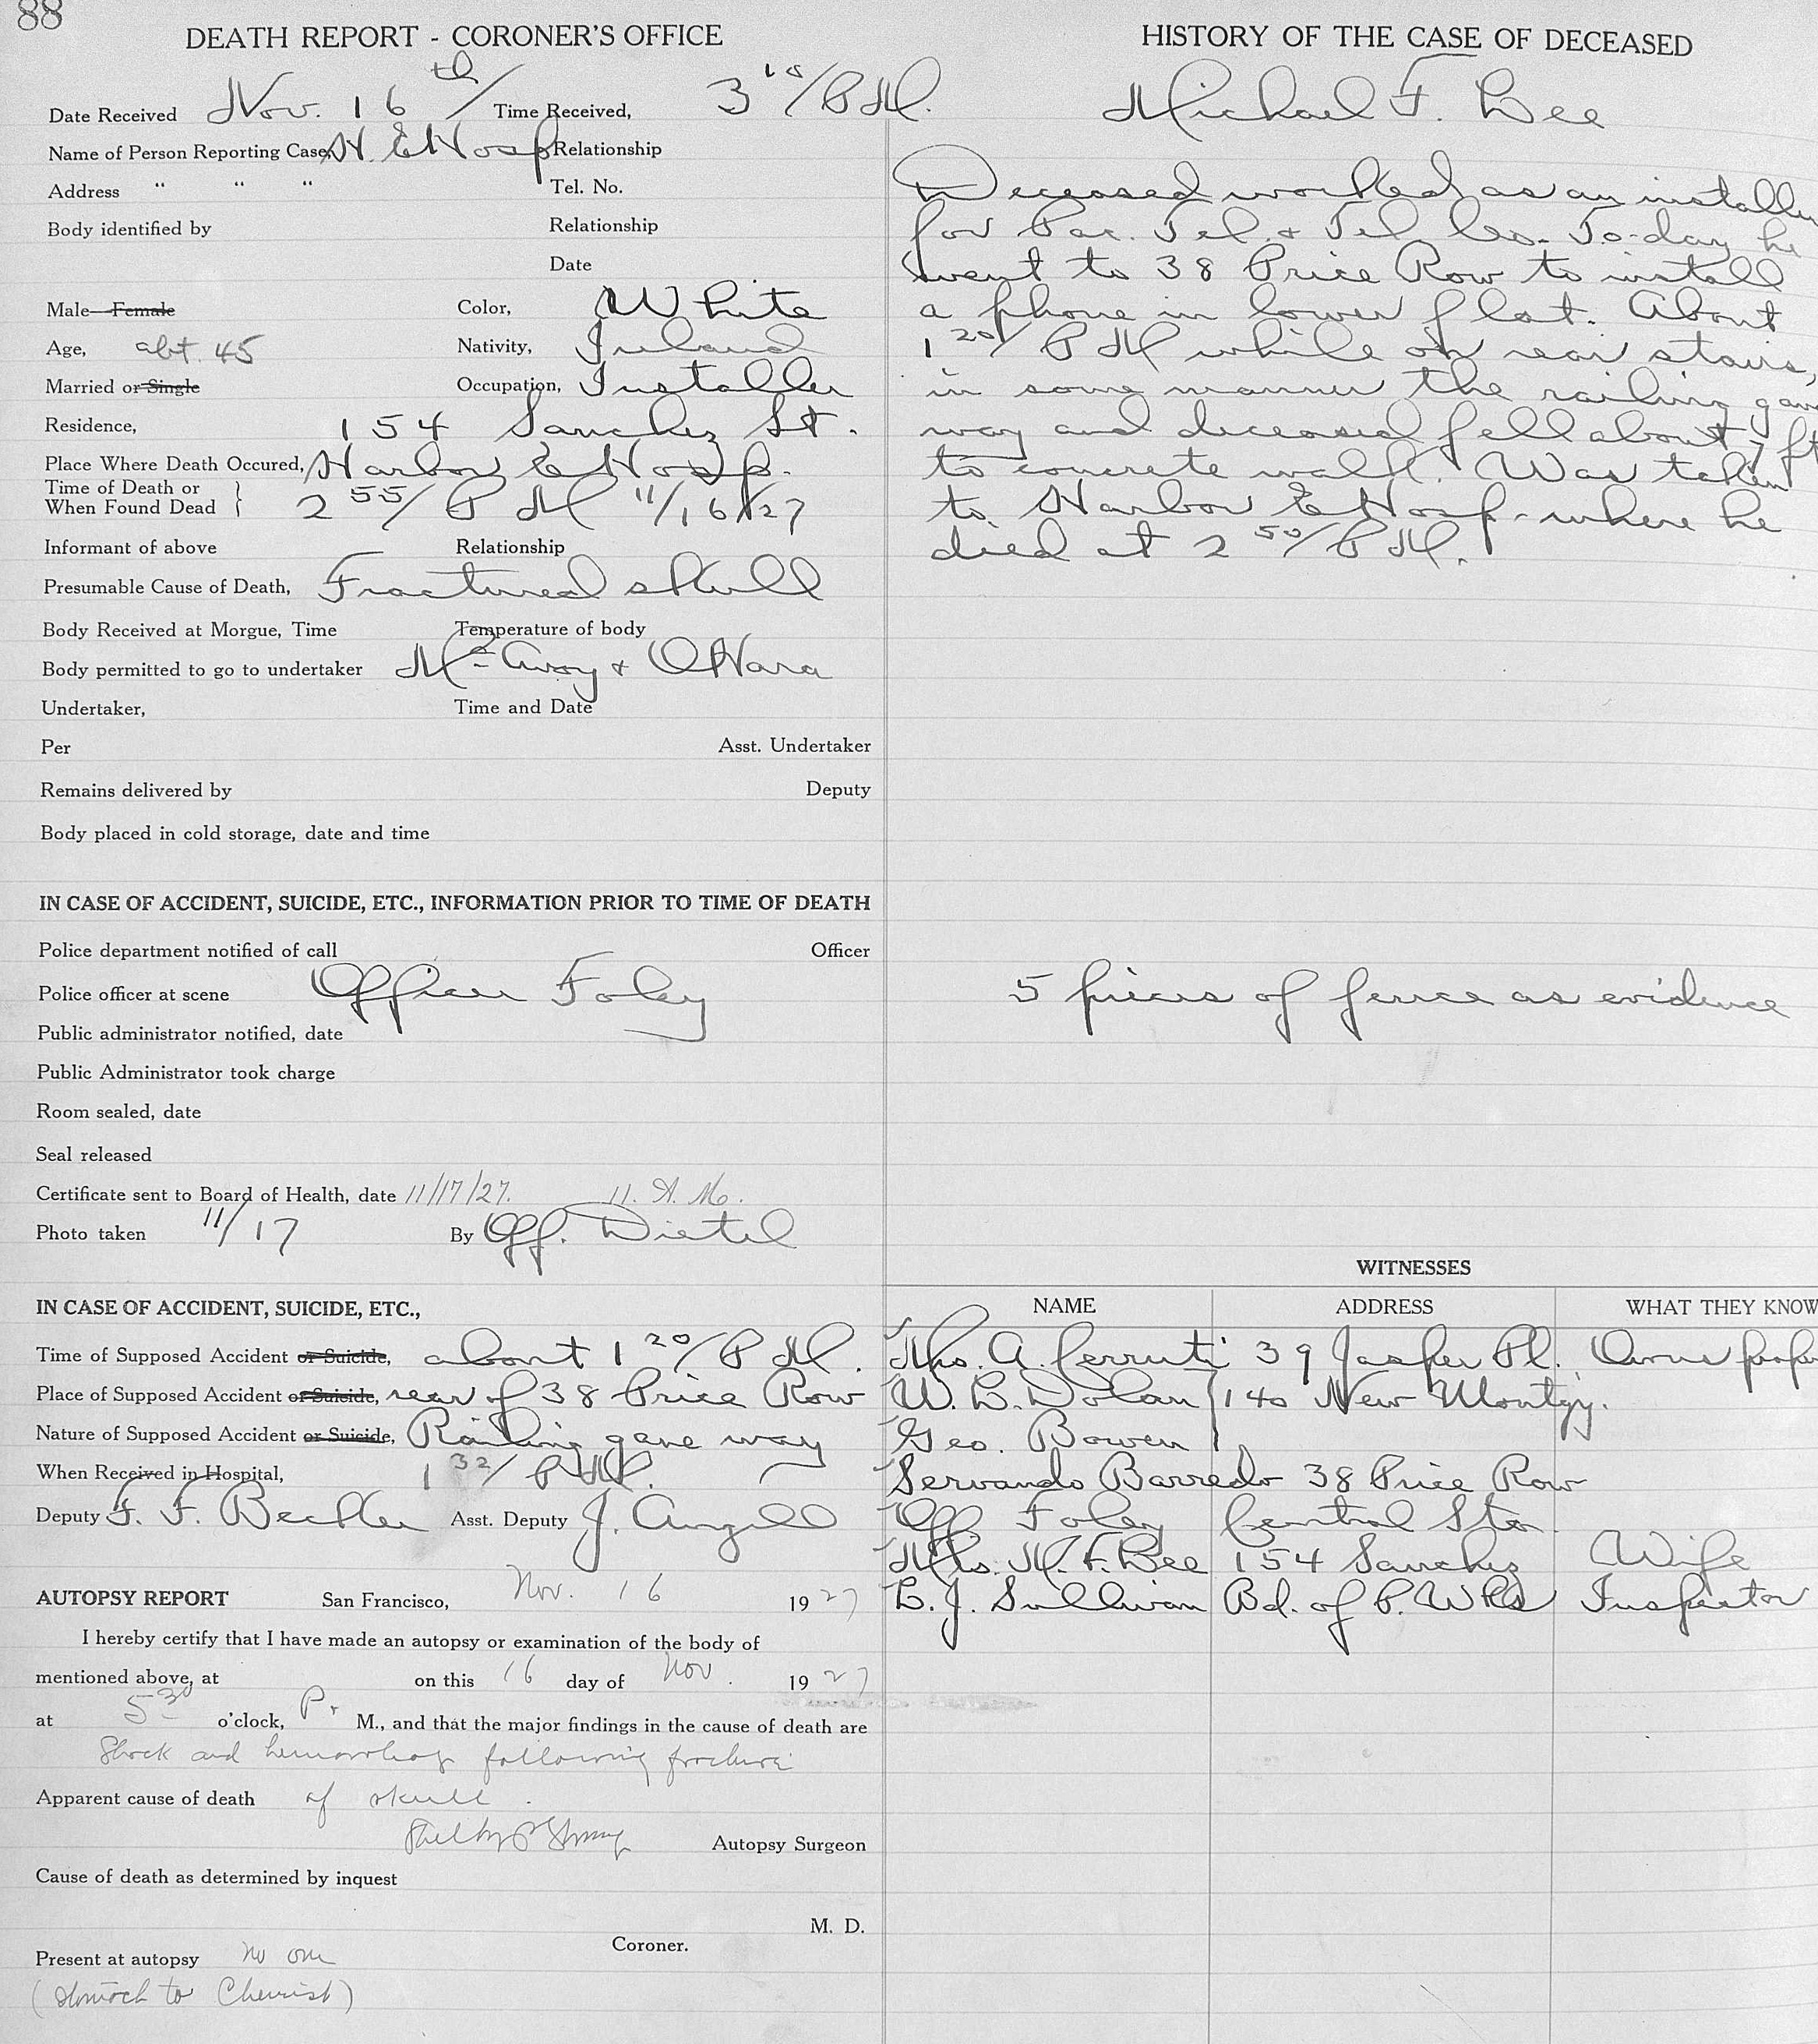 88
DEATH REPORT - CORONER'S OFFICE
Date Received Nov. 16th/ Time Received, 3 10/PM.
Name of Person Reporting Case, H. E Hosp Relationship
Address " " " Tel. No.
Body identified by Relationship
Date
Male Female Color, White
Age, abt. 45 Nativity, Ireland
Married or Single Occupation, Installer
Residence, 154 Sanchez St.
Place Where Death Occured, Harbor E Hosp.
Time of Death or
When Found Dead } 2 55/ PM 11/16/27
Informant of above Relationship
Presumable Cause of Death, Fractured skull
Body Received at Morgue, Time Temperature of body
Body permitted to go to undertaker McAvoy & OHara
Undertaker, Time and Date
Per Asst. Undertaker
Remains delivered by Deputy
Body placed in cold storage, date and time
IN CASE OF ACCIDENT, SUICIDE, ETC., INFORMATION PRIOR TO TIME OF DEATH
Police department notified of call Officer
Police officer at scene Officer Foley
Public administrator notified, date
Public Administrator took charge
Room sealed, date
Seal released
Certificate sent to Board of Health, date 11/17/27. 11. A. M.
Photo taken 11/17 By Off. Dietel
IN CASE OF ACCIDENT, SUICIDE, ETC.,
Time of Supposed Accident or Suicide, about 1 20/ PM.
Place of Supposed Accident or Suicide, rear of 38 Price Row
Nature of Supposed Accident or Suicide, Railing gave way
When Received in Hospital, 1 32/ PM.
Deputy F. F. Becker Asst. Deputy J. Angell
AUTOPSY REPORT San Francisco, Nov. 16 1927
I hereby certify that I have made an autopsy or examination of the body of
mentioned above, at on this 16 day of Nov. 1927
at 5 30 o'clock, P. M., and that the major findings in the cause of death are
Shock and hemorrhage following fracture
Apparent cause of death of skull.
Autopsy Surgeon
Cause of death as determined by inquest
M. D.
Coroner.
Present at autopsy no one
(Stomach to Chemist)
HISTORY OF THE CASE OF DECEASED
Michael F. Lee
Deceased worked as an installer
for Pac. Tel. & Tel Co. To-day he
went to 38 Price Row to install
a phone in lower flat. About
1 20/ PM while on rear stairs,
in some manner the railing gave
way and deceased fell about 7 ft
to concrete walk. Was taken
to Harbor E Hosp. where he
died at 2 50/PM.
5 pieces of fence as evidence
WITNESSES
NAME ADDRESS WHAT THEY KNOW
Mrs. A. Cerruti 39 Jasper Pl. Owns prop
W. L. Dolan 140 New Montgy.
Geo. Bowen
Servando Barredo 38 Price Row
Off Foley Central Sta.
Mrs. M. F. Lee 154 Sanchez Wife
L. J. Sullivan Bd. of P. Wks Inspector